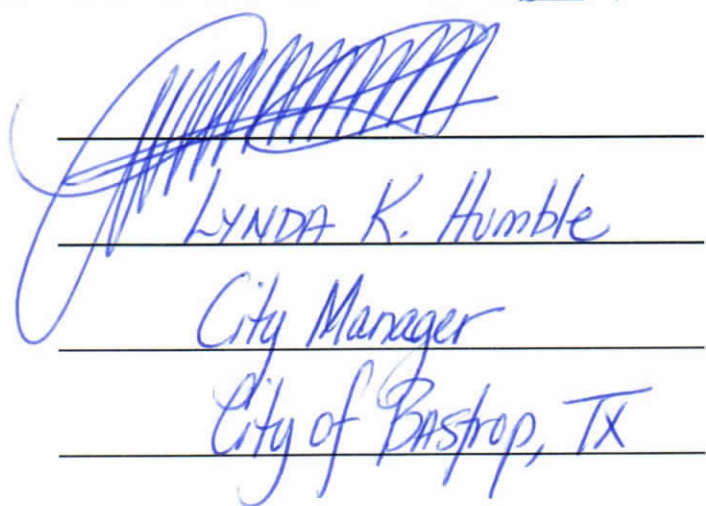 LYNDA K. Humble
City Manager
City of BAstrop, TX